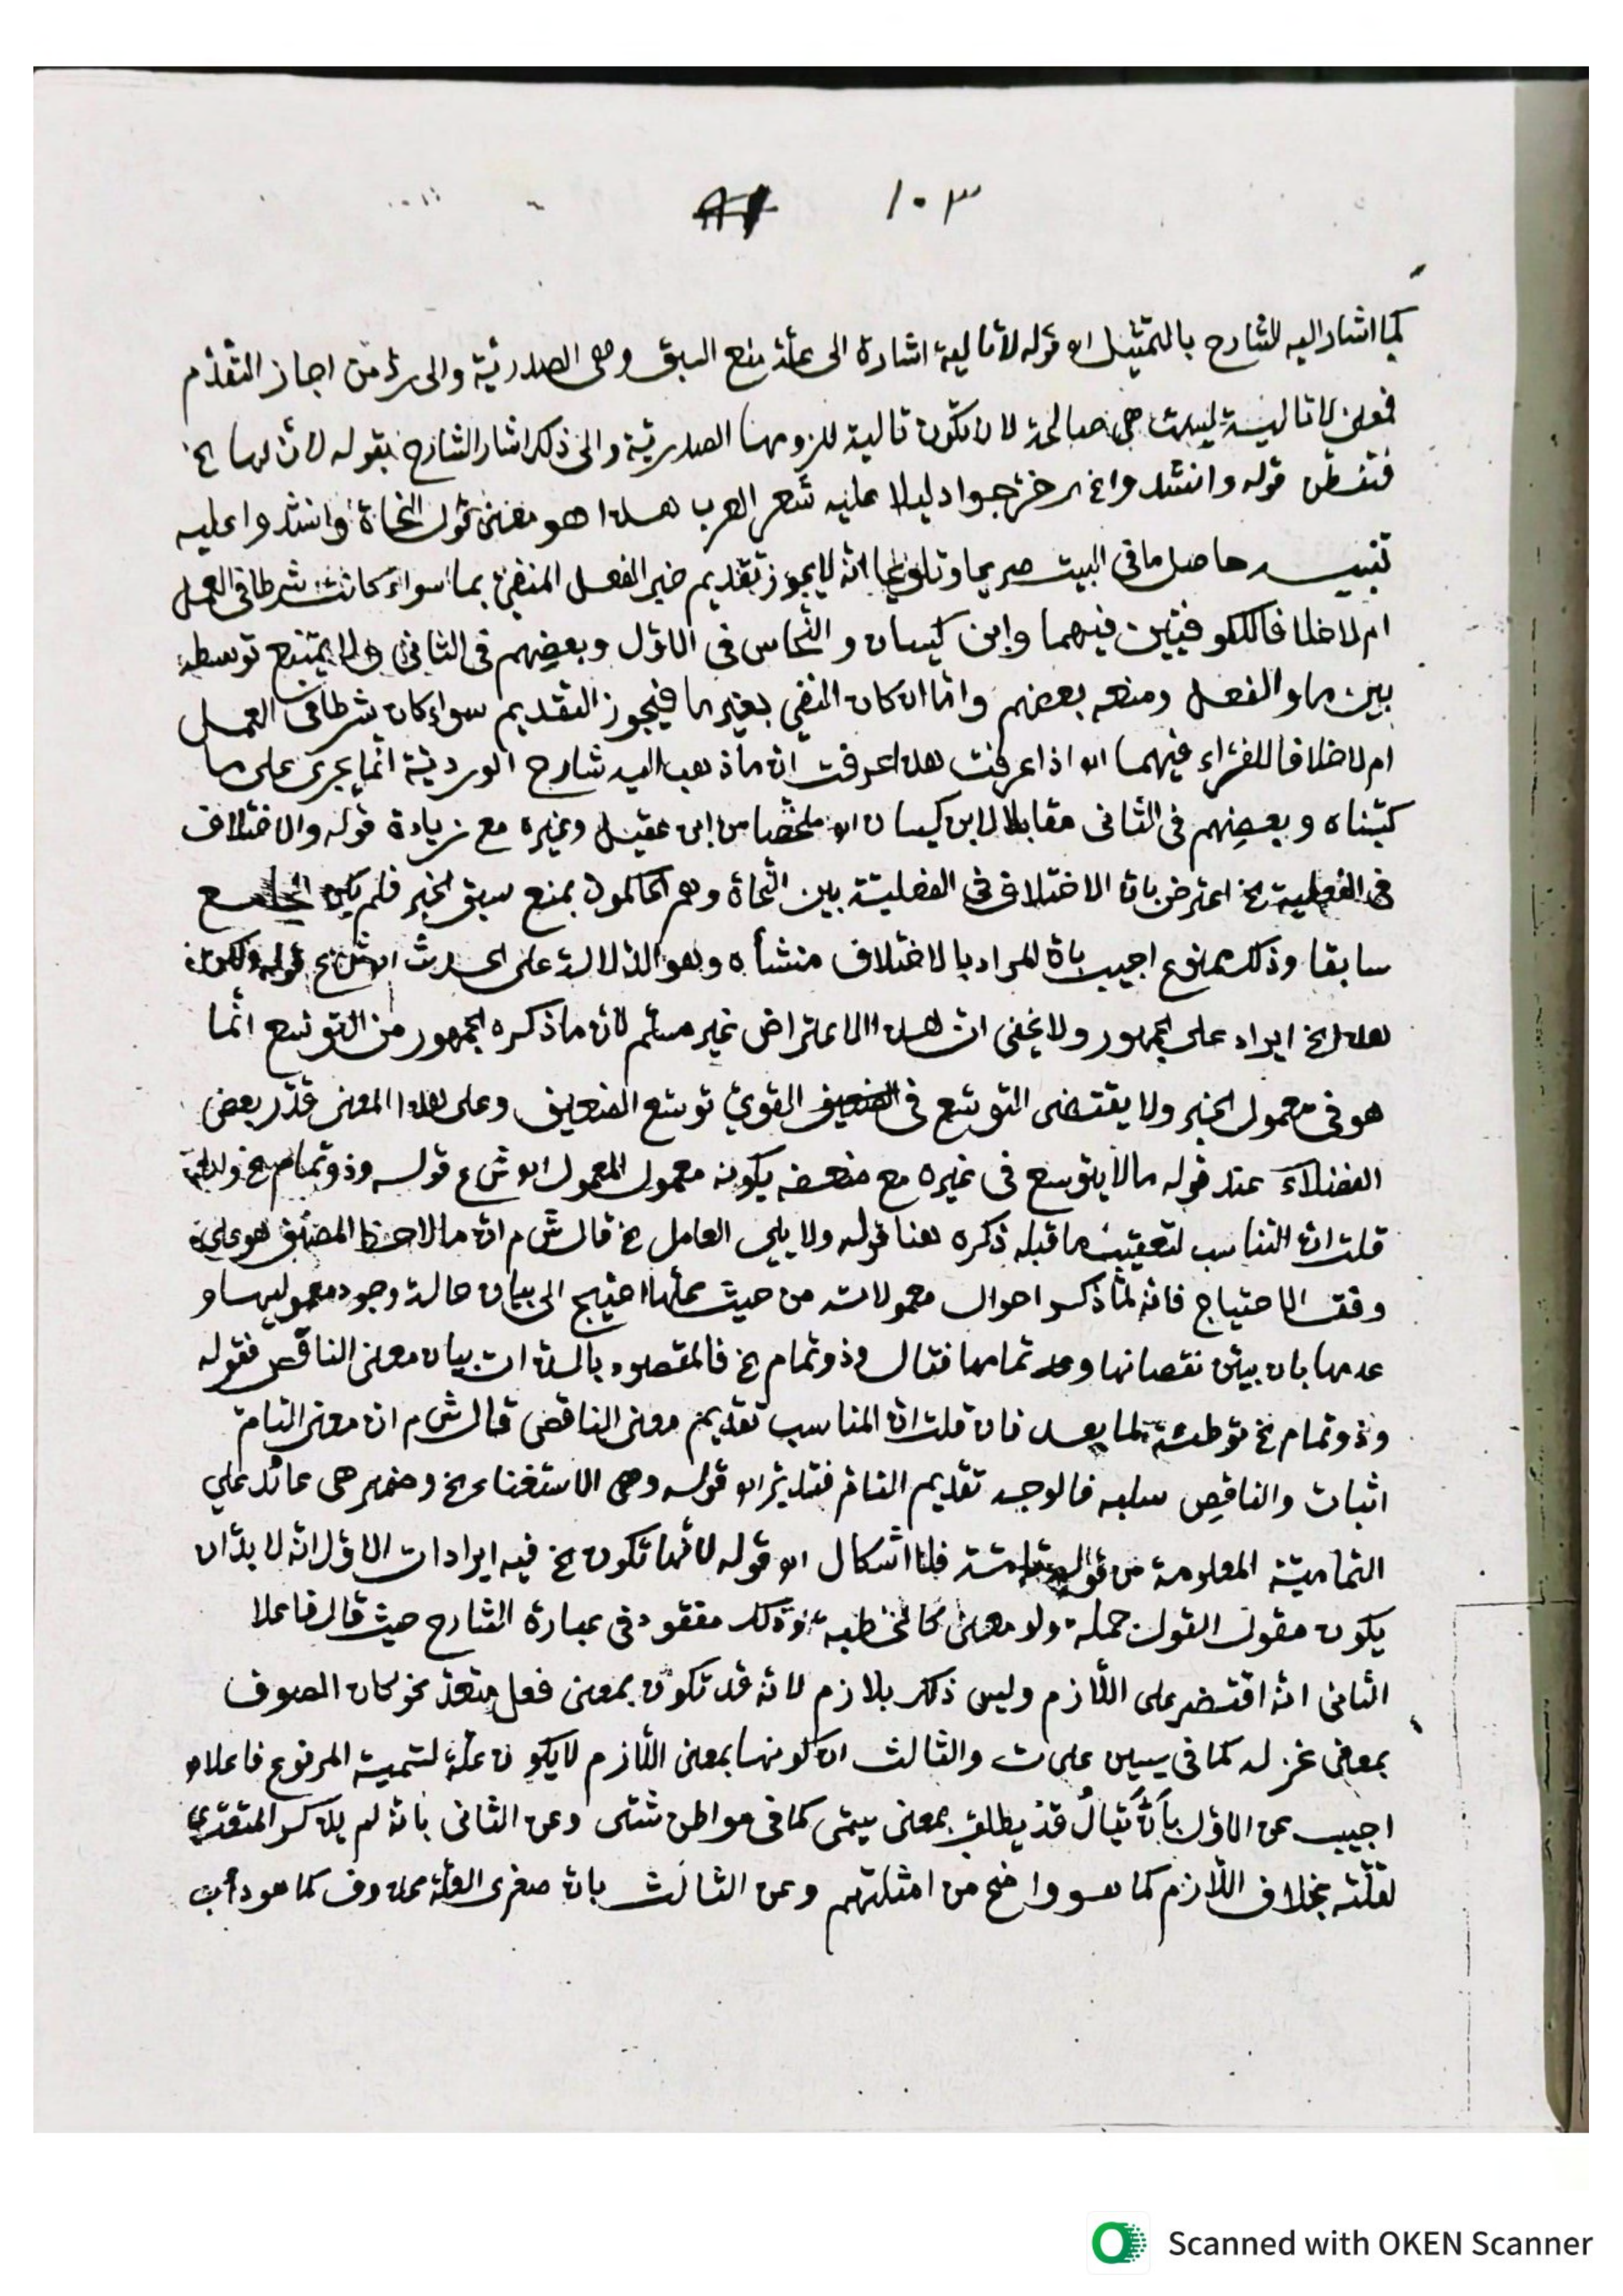 ١٠٣
كما اشار اليه الشارح بالتمثيل اه قوله لا تالية اشارة الى علة منع السبق وهى الصدرية والى رد من اجاز التقدم
فمعنى لا تالية ليست هى صالحة لان تكون تالية للزومها الصدرية والى ذلك اشار الشارح بقوله لان لها الخ
فتفطن قوله وانشدوا اى خرجوا دليلا عليه شعر العرب هذا هو معنى قول النحاة وانشدوا عليه
تنبيه حاصل ما فى البيت صريحا وتلويحا انه لا يجوز تقديم خبر الفعل المنفى بما سواء كانت شرطا فى العمل
ام لا خلافا للكوفيين فيهما وابن كيسان والنحاس فى الاول وبعضهم فى الثانى ولا يمتنع توسطه
بين ما والفعل ومنعه بعضهم واما ان كان النفي بغير ما فيجوز التقديم سواء كان شرطا فى العمل
ام لا خلافا للفراء فيهما اه اذا عرفت هذا عرفت ان ما ذهب اليه شارح الوردية انما يجرى على ما
كتبناه وبعضهم فى الثانى مقابلا لابن كيسان اه ملخصا من ابن عقيل وغيره مع زيادة قوله والاختلاف
فى الفعلية الخ اعترض بان الاختلاف فى الفعلية بين النحاة وهم الحاكمون بمنع سبق الخبر فلم يكن الجامع
سابقا وذلك ممنوع اجيب بان المراد بالاختلاف منشأه وهو الدلالة على الحدث اه ش ع قوله ولكن
هذا الخ ايراد على الجمهور ولا يخفى ان هذا الاعتراض غير مسلم لان ما ذكره الجمهور من التوسع انما
هو فى معمول الخبر ولا يقتضى التوسع فى القوي توسع الضعيف وعلى هذا المعنى قدر بعض
الفضلاء عند قوله ما لا يتوسع فى غيره مع ضعفه بكونه معمول المعمول اه ش ع قوله وذو تمام الخ
قلت ان التناسب لتعقيب ما قبله ذكره هنا قوله ولا يلى العامل الخ قال ش م ان ما لاحظ المصنف هو على
وفق الاحتياج فانه لما ذكر احوال معمولاته من حيث عملها احتيج الى بيان حالة وجود معموليها و
عدمها بان بين نقصانها وعد تمامها فقال وذو تمام الخ فالمقصود بالذات بيان معنى الناقص فقوله
وذو تمام الخ توطئة لما بعد فان قلت ان المناسب تقديم معنى الناقص قال ش م ان معنى التام
اثبات والناقص سلبه فالوجه تقديم التام فتدبر اه قوله وهى الاستغناء الخ وضمير هى عائد على
التمامية المعلومة من قوله تامة فلا اشكال اه قوله لانها تكون الخ فيه ايرادات الاول انه لا بد ان
يكون مقول القول جملة ولو معنى كالخطبة وذلك مفقود فى عبارة الشارح حيث قال فاعلا
الثانى انه اقتصر على اللازم وليس ذلك بلازم لانه قد تكون بمعنى فعل متعد نحو كان الصوف
بمعنى غزله كما فى يسين على ت والثالث ان كونها بمعنى اللازم لا يكون علة لتسمية المرفوع فاعلا و
اجيب عن الاول بأن يُقالُ قد يطلق بمعنى يسمى كما فى مواطن شتى وعن الثانى بانه لم يذكر المتعدي
لقلته بخلاف اللازم كما هو واضح من امثلتهم وعن الثالث بان صغرى العلة محذوف كما هو دأب
Scanned with OKEN Scanner